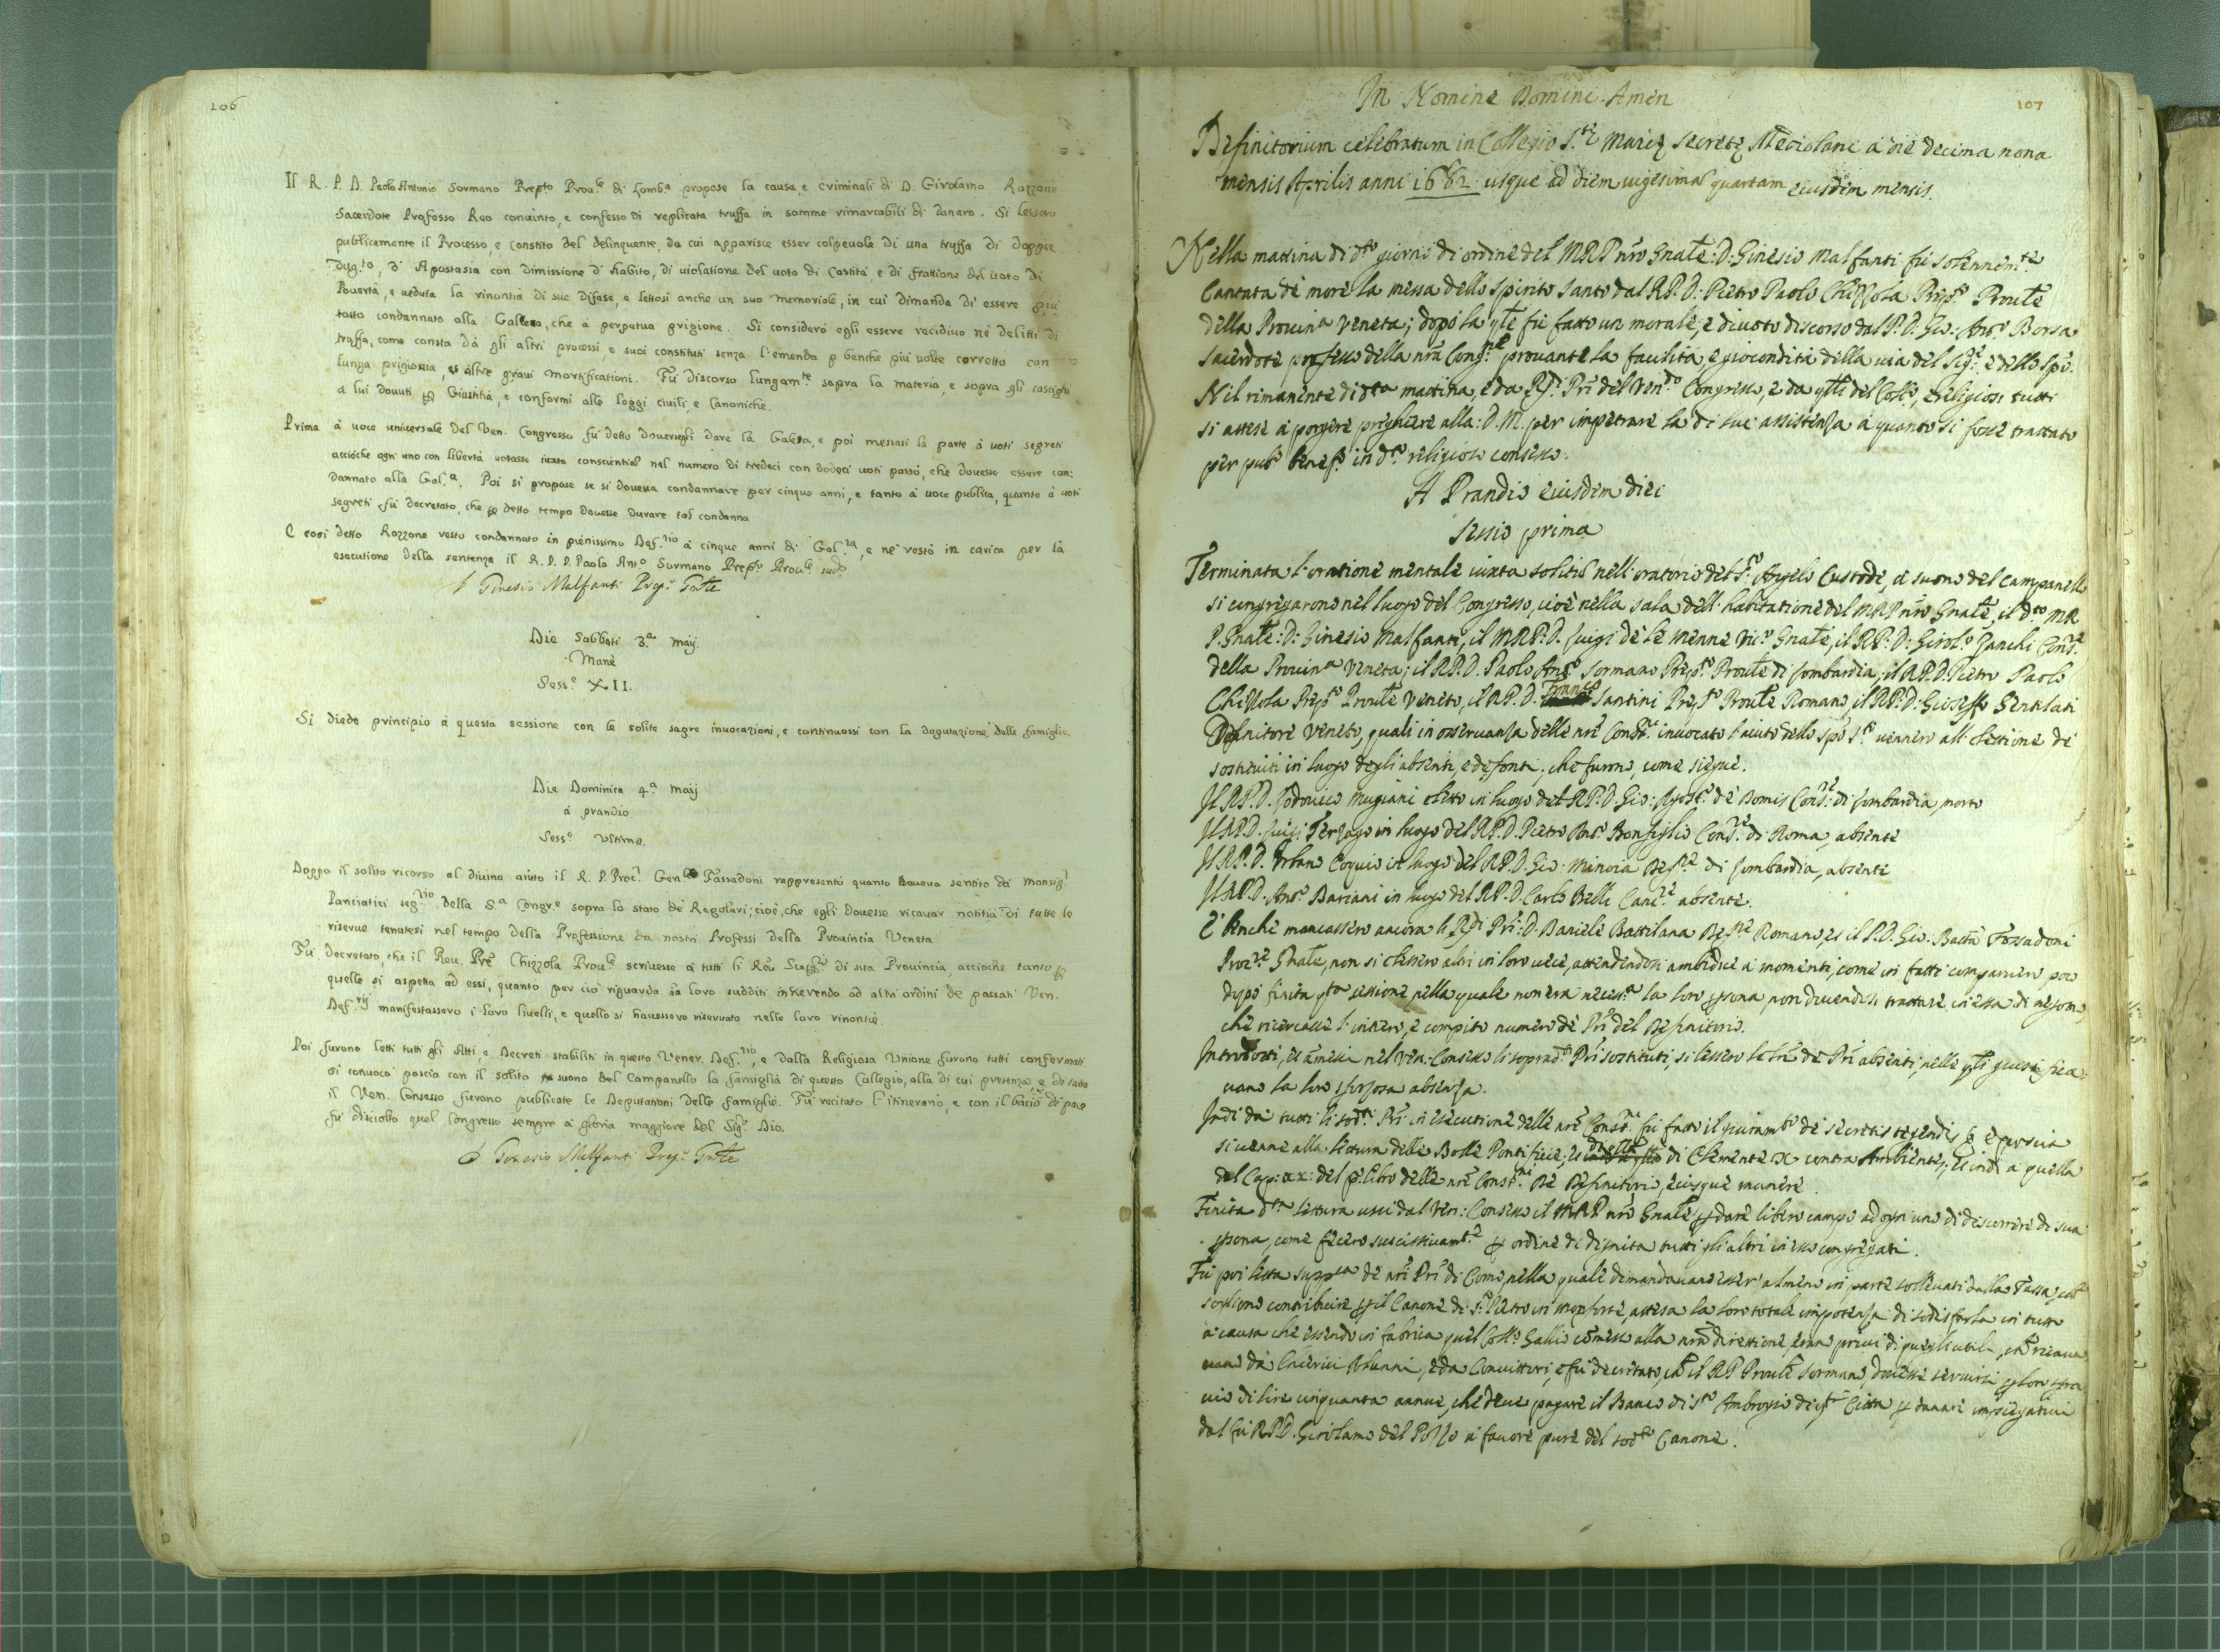 106
Il R. P. D. Paolo Antonio Sormano Prepto Prou.le di Lomb.a propose la causa, e criminali di D. Girolamo Rozzone
Sacerdote Professo Reo conuinto, e confesso di replicata truffa in somme rimarcabili di Danaro. Si lessero
publicamente il Processo, e Constito del delinquente, da cui apparisce esser colpeuole di una truffa di doppie
d'Apostasia con dimissione d'habito, di uiolatione del uoto di Castità, e di frattione del uoto di
Pouertà, e ueduta la rinuntia di sue difese, e lettosi anche un suo memoriale, in cui dimanda di essere più
tosto condannato alla Galera, che à perpetua prigione. Si considerò egli essere recidiuo nè delitti di
truffa, come consta dà gli altri processi, e suoi constituti senza l'emenda benche più uolte corretto con
lunga prigionia, et altre graui mortificationi. Fù discorso lungam.te sopra la materia, e sopra gli castighi
a lui douuti Giustitia, e conformi alle leggi ciuili, e Canoniche.
Prima à uoce uniuersale del Ven. Congresso fù detto douersegli dare la Galera, e poi messasi la parte à uoti segreti
acciòche ogn'uno con libertà uotasse iuxta conscientia nel numero di tredeci con dodeci uoti passò, che douesse essere con:
dannato alla Gal.a. Poi si propose se si doueua condannare per cinque anni, e tanto à uoce publica, quanto à uoti
segreti fù decretato, che detto tempo douesse durare tal condanna
E così detto Rozzone restò condannato in pienissimo Def.rio à cinque anni di Gal.ra, e ne restò in carica per la
esecutione della sentenza il R. P. D. Paolo Ant.o Sormano Prep.to Prou.le sud.o
Ginesio Malfanti Prep. Gnle
Die Sabbati 3.a Maij
Mane
Sess.e XII.
Si diede principio à questa sessione con le solite sagre inuocazioni, e continuossi con la deputazione delle famiglie.
Die Dominica 4.a Maij
à prandio
Sess.e Ultima.
Doppo il solito ricorso al diuino aiuto il R. P. Proc.r Gen.le Fassadoni rappresentò quanto haueua sentito da Monsig.r
Panciatici seg.rio della S.a Congr.e sopra lo stato de Regolari; cioè, che egli douesse ricauar notitia di tutte le
riserue tenutesi nel tempo della Professione da nostri Professi della Prouincia Veneta
Fù decretato, che il Reu. Pre Chizzola Prou.le scriuesse à tutti li Reu. Sup.ri di sua Prouincia, accioche tanto
quello si aspetta ad essi, quanto per ciò riguarda ài loro sudditi inherendo ad altri ordini de passati Ven.
Def.rij manifestassero i loro liuelli, e quello si hauessero riseruato nelle loro rinontie.
Poi furono letti tutti gli Atti, e Decreti stabiliti in questo Vener. Def.rio, e dalla Religiosa Unione furono tutti confermati.
si conuocò poscia con il solito suono del Campanello la famiglia di questo Collegio, alla di cui presenza, e di tutto
il Ven. Consesso furono publicate le Deputationi delle famiglie. Fù recitato l'itinerario, e con il bacio di pace
fù disciolto quel Congresso sempre à gloria maggiore del Sig.r Dio.
Ginesio Malfanti Prep. Gnle
107
In Nomine Domini Amen
Definitorium celebratum in Collegio S.te Marie Secrete Mediolani à die decima nona
mensis Aprilis anni 1682 usque ad diem uigesima quartam eiusdem mensis.
Nella mattina di d.to giorno di ordine del M.R.P. nro Gnale: D: Ginesio Malfanti fù solennem.te
Cantata de more la messa dello Spirito Santo dal R.P. D: Pietro Paolo Chizzola Prep.to Proule
della Prouin.a Veneta; dopò la qle fù fatto un morale, e diuoto discorso dal P. D. Gio: Ant.o Borsa
sacerdote professo della nra Cong.ne prouante la facilità, e giocondità della uia del Sig.e e dello Spo.
Nel rimanente di dta mattina, e da Rdi Pri del Ven.do Congresso, e da qlli del Coll.o, e religiosi tutti
si attese à porgere preghiere alla: D. M. per impetrare la di lui assistenza à quanto si fosse trattato
per pub.o benef.o in d.to religioso consesso.
A Prandio eiusdem diei
Sessio prima
Terminata l'oratione mentale iuxta solitu nell'oratorio del S.to Angelo Custode, al suono del campanello
si congregarono nel luogo del Congresso, cioè nella sala dell'habitatione del M.R.P. nro Gnale, il d.to M.R.
P. Gnale: D: Ginesio Malfanti, il M.R.P. D. Luigi de le Menne Vic.o Gnale, il R.P. D: Girol.o Zanchi Cons.re
della Prouin.a Veneta; il R.P. D. Paolo Ant.o Sormano Prep.to Proule di Lombardia; il R.P. D. Pietro Paolo
Chizzola Prep.to Proule Veneto, il R.P. D. Franco Santini Prep.to Proule Romano, il R.P. D: Gioseffo Gentilati
Definitore Veneto, quali in osseruanza delle nre Const.ni inuocato l'aiuto dello Spo S.to uennero all'elettione de
sostituiti in luogo degli absenti, e defonti, che furono, come siegue.
Il R.P. D. Lodouico Mugiani eletto in luogo del R.P. D. Gio: Agost.o de Domis Cons.re di Lombardia, morto
Il R.P. D. Luigi Terzago in luogo del R.P. D. Pietro Ant.o Bonfiglio Cons.re di Roma, absente
Il R.P. D. Urbano Coquio in luogo del R.P. D. Gio: Maruia Def.re di Lombardia, absente
Il R.P. D. Ant.o Bariani in luogo del R.P. D. Carlo Belli Canc.re absente.
E benche mancassero ancora li Rdi Pri: D. Daniele Battilana Def.re Romano, et il P. D. Gio: Batta Fossadoni
Proc.re Gnale, non si elessero altri in loro uece, attendendosi ambidue à momenti, come in fatti comparuero poco
dopò finita qta sessione, nella quale non era necess.a la loro persona, non douendosi trattare in essa di negotio,
che ricercasse l'intiero, e compito numero de Pri del Definitorio.
Introdotti, et amessi nel Ven. Consesso li soprad.ti Pri sostituti, si lessero le lre de Pri absenti, nelle qli giustifica:
uano la loro sforzosa absenza.
Indi da tutti li sodti Pri in esecutione delle nre Const.ni fù fatto il giuram.to de secretis tegendis, e poscia
si uenne alla lettura delle Bolle Pontificie, di Clemente IX contra Ambientes, et indi à quella
del Cap: xx: del p.o libro delle nre Const.ni De Definitorio, eiusque munere.
Finita d.ta lettura uscì dal Ven: Consesso il M.R.P. nro Gnale dare libero campo ad ogn'uno di discorrere di sua
persona, come fecero successiuam.te ordine di dignità tutti gli altri in esso congregati.
Fù poi letta supp.ca de nri Pri di Como, nella quale dimandauano esser almeno in parte solleuati dalla Tassa, che
sogliono contribuire il Canone di S. Pietro in Monforte, attesa la loro totale impotenza di sodisfarla in tutto
à causa che essendo in fabrica quel Coll.o Gallio comesso alla nra direttione, erano priui di quegli utili, che ricaua:
uano dà Chierici Alunni, e da Conuittori, e fù decretato, che il R.P. Proule Sormano, douesse seruirsi loro sgra:
uio di lire cinquanta annue, che deue pagare il Banco di S.to Ambrogio di qta Città danari impiegatiui
dal fù R.P. D. Girolamo del Pozzo à fauore pure del sod.to Canone.